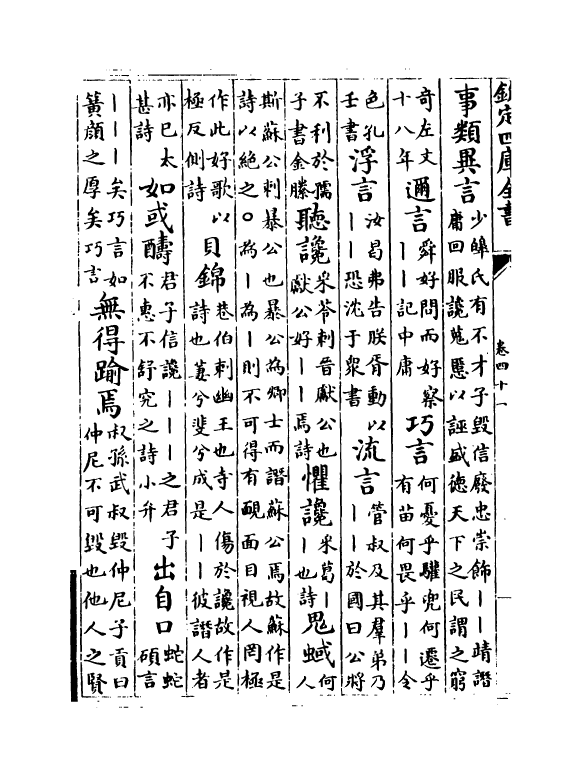 欽定四庫全書
卷四十一
事類異言少皞氏有不才子毀信廢忠崇飾｜｜靖譖庸回服讒蒐慝以誣盛德天下之民謂之窮
奇左文十八年邇言舜好問而好察｜｜記中庸巧言何憂乎驩兜何遷乎有苗何畏乎｜｜令
色孔壬書浮言汝曷弗告朕胥動以｜｜恐沈于衆書流言管叔及其羣弟乃｜｜於國曰公將
不利於孺子書金縢聽讒采苓刺晉獻公也獻公好｜｜焉詩懼讒采葛｜｜也詩鬼蜮何人
斯蘇公刺暴公也暴公為卿士而譖蘇公焉故蘇作是詩以絶之○為｜為｜則不可得有靦面目視人罔極
作此好歌以極反側詩貝錦巷伯刺幽王也寺人傷於讒故作是詩也萋兮斐兮成是｜｜彼譖人者
亦已太甚詩如或醻君子信讒｜｜｜之君子不惠不舒究之詩小升出自口蛇蛇碩言
｜｜｜矣巧言如簧顔之厚矣巧言無得踰焉叔孫武叔毀仲尼子貢曰仲尼不可毀也他人之賢